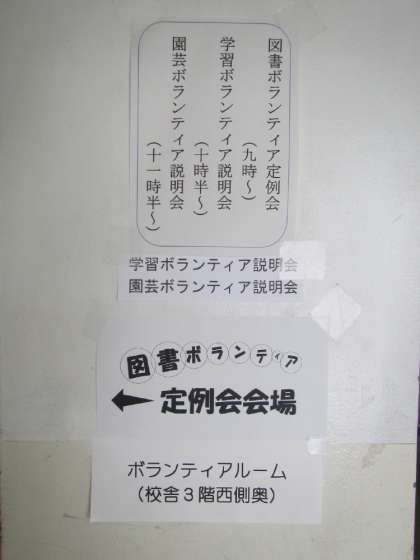 図書ボランティア定例会
（九時～）
学習ボランティア説明会
（十時半～）
園芸ボランティア説明会
（十一時半～）
学習ボランティア説明会
園芸ボランティア説明会
図書ボランティア
← 定例会会場
ボランティアルーム
（校舎３階西側奥）